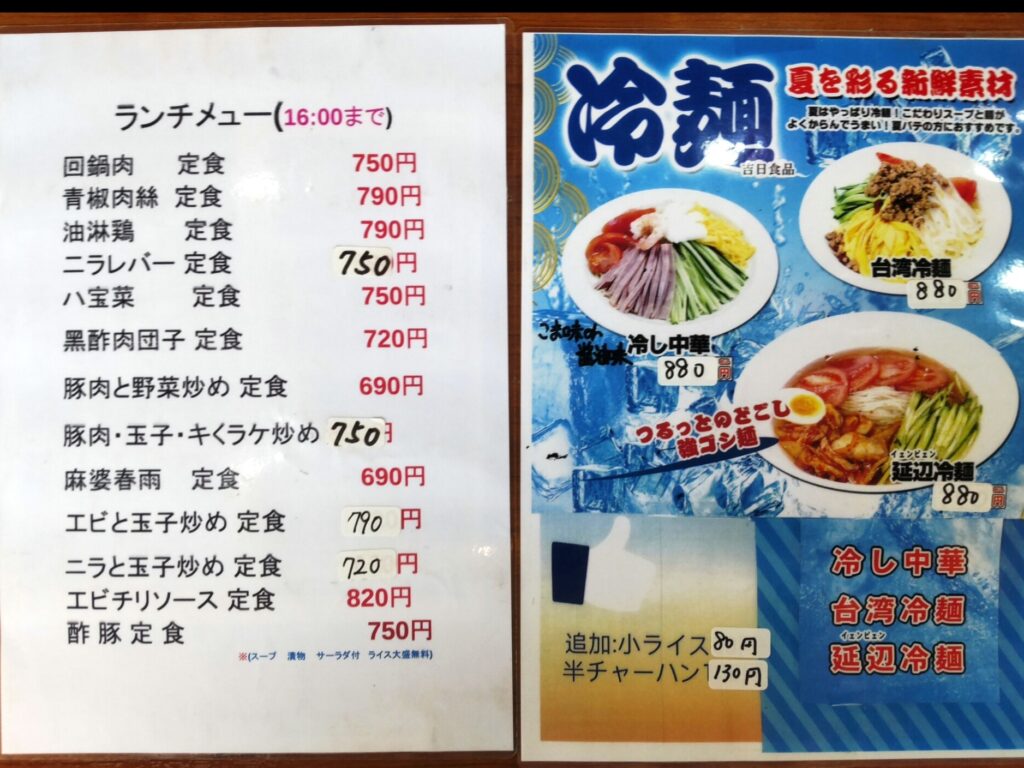 ランチメュー(16:00まで)
回鍋肉 定食 750円
青椒肉絲 定食 790円
油淋鶏 定食 790円
ニラレバー 定食 750円
ハ宝菜 定食 750円
黑酢肉団子 定食 720円
豚肉と野菜炒め 定食 690円
豚肉・玉子・キくラケ炒め 750円
麻婆春雨 定食 690円
エビと玉子炒め 定食 790円
ニラと玉子炒め 定食 720円
エビチリソース 定食 820円
酢豚定食 750円
※(スープ 漬物 サーラダ付 ライス大盛無料)
冷麺
夏を彩る新鮮素材
夏はやっぱり冷麺！こだわりスープと麺が
よくからんでうまい！夏バテの方におすすめです。
吉日食品
台湾冷麺
880円
ごま味or
醤油味
冷し中華
880円
つるっとのどごし
強ゴシ麺
イェンビェン
延辺冷麺
880円
冷し中華
台湾冷麺
イェンビェン
延辺冷麺
追加:小ライス 80円
半チャーハン 130円